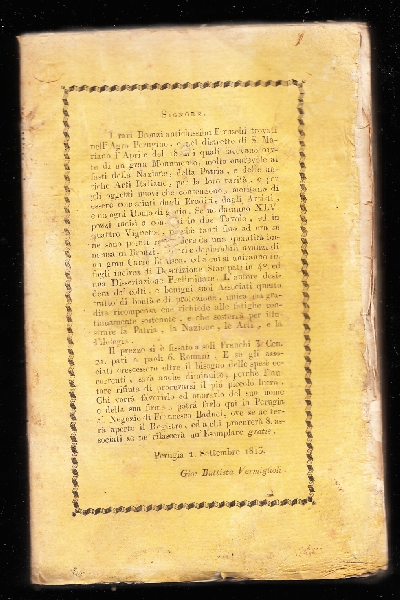 SIGNORE,
I rari Bronzi antichissimi Etruschi trovati
nell'Agro Perugino, e nel distretto di S. Ma-
riano l'Aprile del quali facevano par-
te di un gran Monumento, molto onorevole ai
fasti della Nazione, della Patria, e delle an-
tiche Arti Italiane, per la loro rarità, e per
gli oggetti nuovi che contengono, meritano di
essere conosciuti dagli Eruditi, dagli Artisti,
e da ogni Uomo di gusto. Se ne daranno XLV
pezzi incisi e in due Tavole, ed in
quattro Vignette, perchè tanti fino ad ora se
ne sono una quantità im-
mensa di Bronzi. avanzi di
un gran Carro ed a essi uniranno in-
fogli Descrizione Stampati in 4.º ed
una Dissertazione Preliminare. L'autore desi-
dera de' colti, e benigni suoi Associati questo
tratto di bontà e di protezione, unica ma gra-
dita ricompensa che richiede alle fatiche con-
tinuamente sostenute, e che sosterrà per illu-
strare la Patria, la Nazione, le Arti, e la
Il prezzo si è fissato a soli Franchi 3: Cen.
21. pari a paoli 6. Romani. E se gli asso-
ciati crescessero oltre il bisogno delle spese oc-
correnti, sarà anche diminuito, perchè l'au-
tore rifiuta di procurarsi il più piccolo lucro.
Chi vorrà favorirlo ed onorarlo del suo nome
e della sua firma, potrà farlo qui in Perugia
al Negozio di Francesco Baduel, ove se ne ter-
rà aperto il Registro, ed a chi procurerà 8. as-
sociati se ne rilascerà un'Esemplare gratis.
Perugia 1. Settembre 1813.
Gio: Battista Vermiglioli.